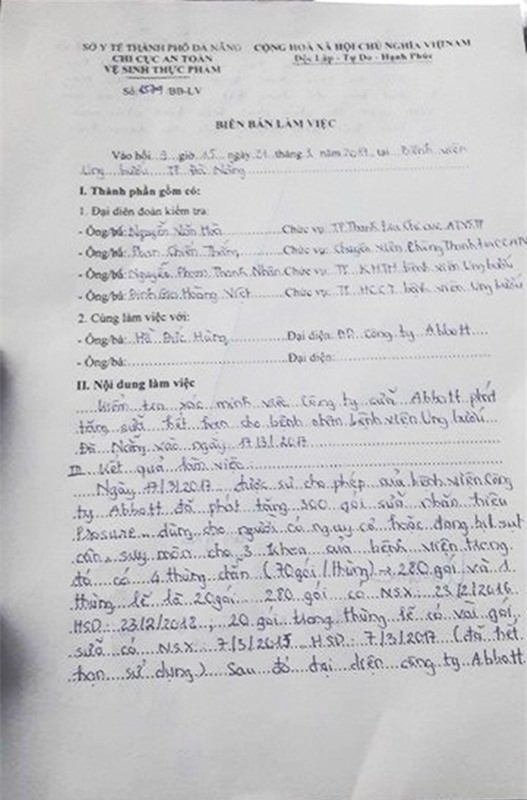 SỞ Y TẾ THÀNH PHỐ ĐÀ NẴNG CỘNG HOÀ XÃ HỘI CHỦ NGHĨA VIỆT NAM
CHI CỤC AN TOÀN Độc Lập - Tự Do - Hạnh Phúc
VỆ SINH THỰC PHẨM
Số /BB-LV
BIÊN BẢN LÀM VIỆC
Vào hồi 9 giờ 15 ngày 21 tháng 3 năm 2017 tại Bệnh viện
Ung bướu TP Đà Nẵng
I. Thành phần gồm có:
1. Đại diện đoàn kiểm tra:
- Ông/bà: Nguyễn Văn Hoà Chức vụ: TP Thanh tra Chi cục ATVSTP
- Ông/bà: Phan Chiến Thắng Chức vụ: Chuyên viên Phòng Thanh tra CCAT
- Ông/bà: Nguyễn Phạm Thanh Nhân Chức vụ: TP. KHTH bệnh viện Ung bướu
- Ông/bà: Đinh Gia Hoàng Việt Chức vụ: TP. HCCT bệnh viện Ung bướu
2. Cùng làm việc với:
- Ông/bà: Hồ Đức Hùng Đại diện: ĐD Công ty Abbott
- Ông/bà: Đại diện:
II. Nội dung làm việc
Kiểm tra xác minh việc Công ty sữa Abbott phát
tặng sữa hết hạn cho bệnh nhân bệnh viện Ung bướu
Đà Nẵng vào ngày 17/3/2017
III Kết quả làm việc
Ngày 17/3/2017 được sự cho phép của bệnh viện Công
ty Abbott đã phát tặng 300 gói sữa nhãn hiệu
Prosure dùng cho người có nguy cơ hoặc đang bị sụt
cân, suy mòn cho 3 khoa của bệnh viện trong
đó có 4 thùng chẵn (70gói/thùng) → 280 gói và 1
thùng lẻ là 20gói. 280 gói có NSX: 23/2/2016
HSD: 23/2/2018, 20 gói trong thùng lẻ có vài gói
sữa có NSX: 7/3/2015 HSD: 7/3/2017 (đã hết
hạn sử dụng). Sau đó đại diện công ty Abbott